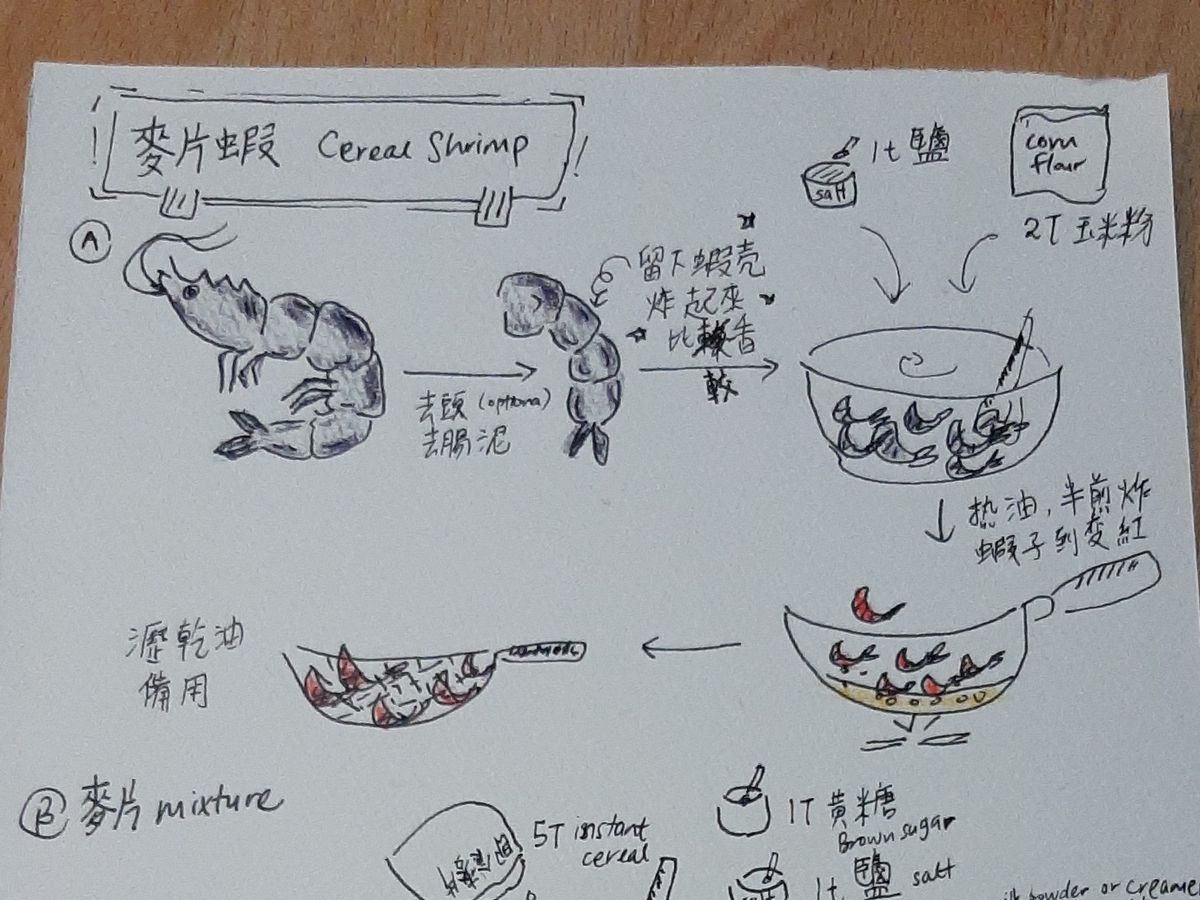 麥片蝦 Cereal Shrimp
A
去頭 (optional)
去腸泥
留下蝦壳
炸起來
比較香
較
salt
1t 鹽
corn
flour
2T 玉米粉
热油,半煎炸
蝦子到变紅
瀝乾油
備用
B 麥片 mixture
5T instant
cereal
1T 黃糖
Brown sugar
1t 鹽 salt
powder or creamer